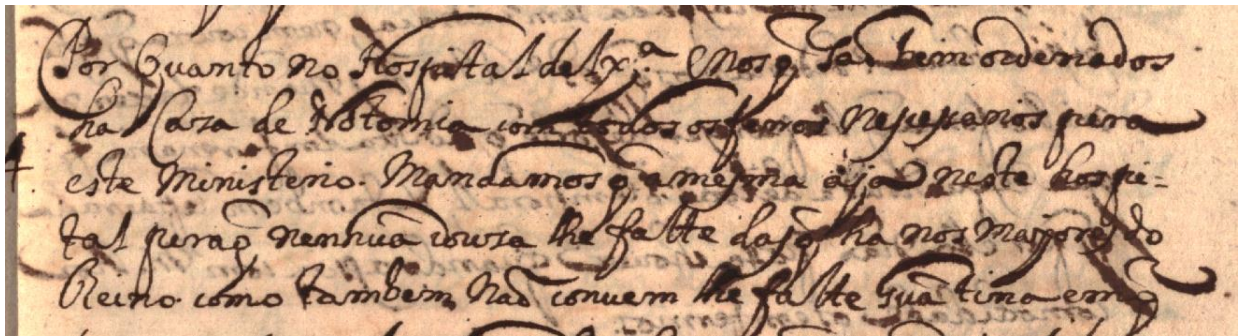 Por Quanto no Hospital de Lx.ª e nos q̃ saõ bem ordenados
ha Casa de Notomia com todos os ferros nesesarios pera
4 este Ministerio. Mandamos q̃ a mesma aja neste hospi-
tal pera q̃ nenhuã cousa lhe falte das q̃ ha nos Mayores do
Reino. como tambem Naõ convem lhe falte huã tina em q̃